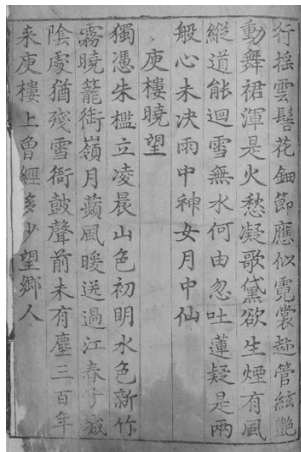 行揺雲髻花鈿節應似霓裳趂管絃艷
動舞裙渾是火愁凝歌黛欲生煙有風
縱道能迴雪無水何由忽吐蓮疑是兩
般心未决雨中神女月中仙
庾樓曉望
獨憑朱檻立凌晨山色初明水色新竹
霧曉籠銜嶺月蘋風暖送過江春子城
陰處猶殘雪衙鼓聲前未有塵三百年
来庾樓上曾經多少望鄉人